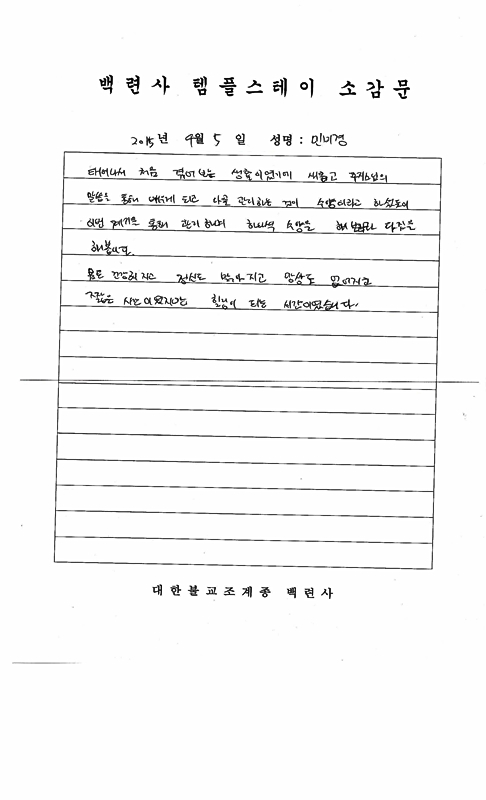 백련사 템플스테이 소감문
2015년 9월 5일 성명 : 민미경
태어나서 처음 겪어보는 생활이였기에 새롭고 주지스님의
말씀을 통해 배우게 되고 나를 관리하는 것이 수양이라고 하셨듯이
이번 계기를 통해 관리하며 하나씩 수양을 해 보리라 다짐을
해봅니다.
몸도 건강해지고 정신도 맑아지고 망상도 없어지고
짧은 시간이었지만 힐링이 되는 시간이었습니다.
대한불교조계종 백련사